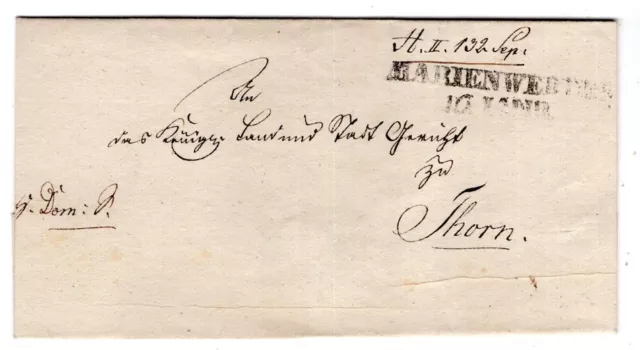 H. II. 132. Sep.
MARIENWERDER
An
das Königl. Land und Stadt Gericht
zu
Thorn.
Dom: S.